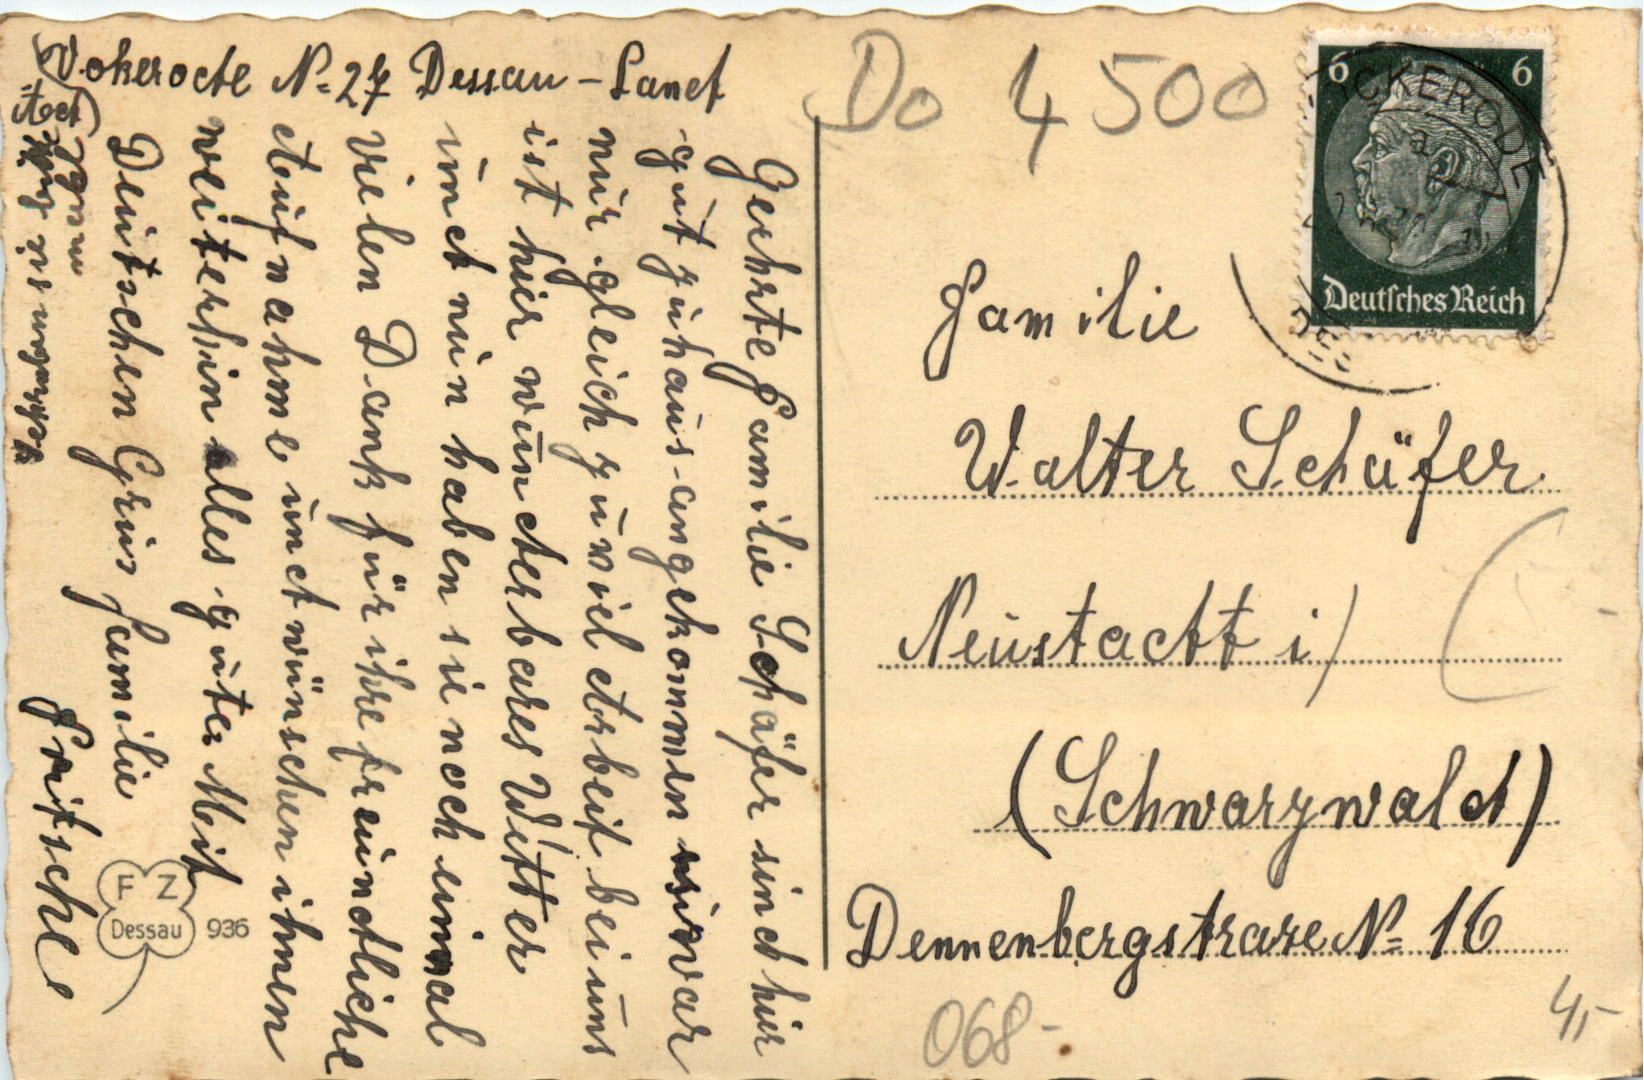 Vokerode N= 27 Dessau - Land
Geehrte Familie Schäfer sind hir
gut zuhaus angekommen es war
nur gleich zuviel Arbeit bei uns
ist hier wunderbares Wetter
und nun haben sie noch einmal
vielen Dank für ihre freundliche
Aufnahme und wünschen ihnen
weiterhin alles guter Mit
Deutschen Grus Familie
Fritsche
F Z
Dessau 936
Do 4 500
6 6
Deutsches Reich
Familie
Walter Schäfer
Neustadt i/
(Schwarzwald)
Dennenbergstrase N= 16
068-
4,-